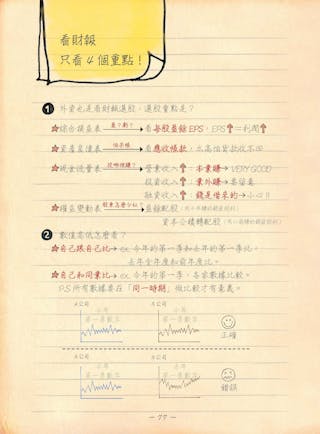 看財報
只看4個重點！
❶ 外資也是看財報選股，選股重點是？
綜合損益表 賺？虧？ 看每股盈餘EPS，EPS↑＝利潤↑
資產負債表 怕呆帳 看應收帳款，太高怕貨款收不回
現金流量表 從哪裡賺？ 營業收入↑：本業賺→VERY GOOD
投資收入↑：業外賺→要留意
融資收入↑：錢是借來的→小心!!
權益變動表 股東怎麼分紅 盈餘配股
資本公積轉配股
❷ 數值高低怎麼看？
自己跟自己比→ex.今年的第一季和去年的第一季比。
去年全年度和前年度比。
自己和同業比→ex.今年的第一季，各家數據比較。
P.S.所有數據要在「同一時期」做比較才有意義。
A公司 A公司
第一季數字 第一季數字
正確
A公司 A公司
第一季數字
錯誤
— 77 —